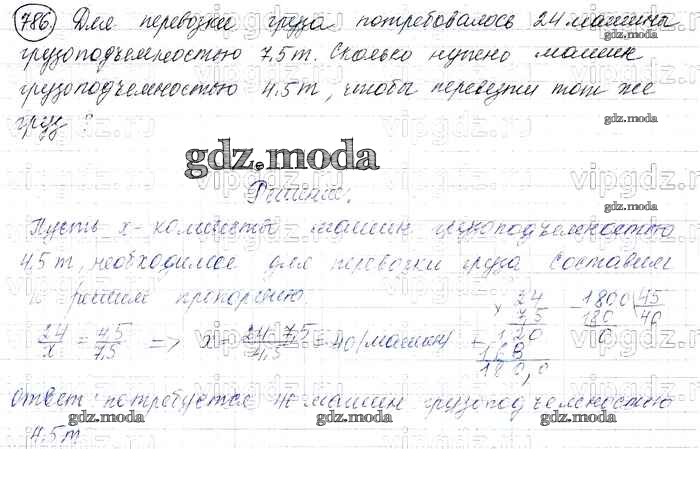 786) Для перевозки груза потребовалось 24 машины
грузоподъемностью 7,5т. Сколько нужно машин
грузоподъемностью 4,5т, чтобы перевезти тот же
груз?
gdz.moda
Решение.
Пусть x - количество машин грузоподъемностью
4,5т, необходимое для перевозки груза. Составим
и решим пропорцию.
24/x = 4,5/7,5 => x = 24·7,5/4,5 = 40 (машин)
× 24
75
+ 120
168
180,0
1800 | 45
180 | 40
0
Ответ: потребуется 40 машин грузоподъемностью
gdz.moda gdz.moda gdz.moda
4,5т